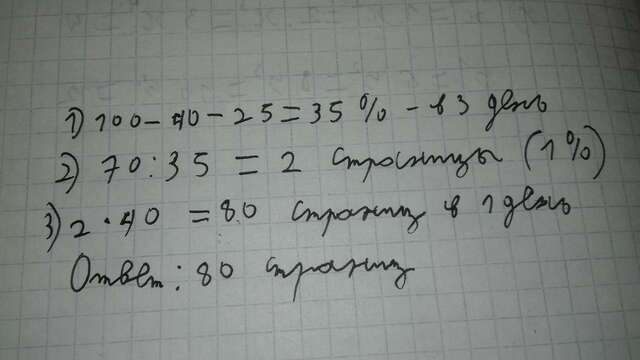 1) 100-40-25=35% - в 3 день
2) 70:35 = 2 страницы (1%)
3) 2·40 = 80 страниц в 1 день
Ответ: 80 страниц